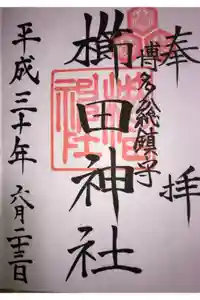 奉拝
博多総鎮守
櫛田神社
平成三十年六月二十三日